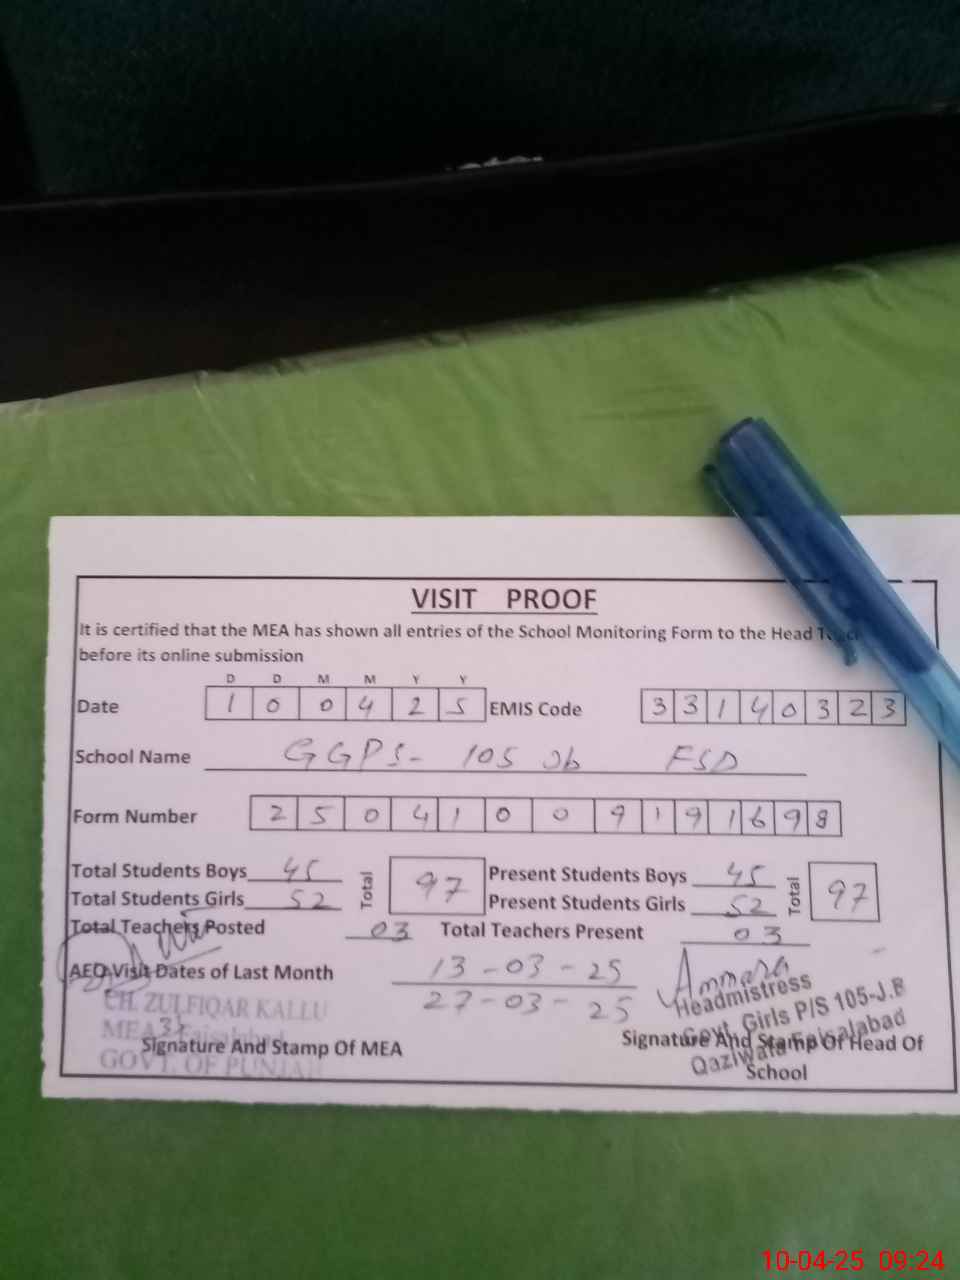 VISIT PROOF
It is certified that the MEA has shown all entries of the School Monitoring Form to the Head
before its online submission
D D M M Y Y
Date 1 0 0 4 2 5 EMIS Code 3 3 1 4 0 3 2 3
School Name GGPS- 105 Jb FSD
Form Number 2 5 0 4 1 0 0 9 1 9 1 6 9 8
Total Students Boys 45 Total 97 Present Students Boys 45 Total 97
Total Students Girls 52 Present Students Girls 52
Total Teachers Posted 03 Total Teachers Present 03
AEO Visit Dates of Last Month 13-03-25
27-03-25
Ammara
Headmistress
Govt. Girls P/S 105-J.B
Qaziwala Faisalabad
CH. ZULFIQAR KALLU
MEA 31 Faisalabad
GOVT. OF PUNJAB
Signature And Stamp Of MEA
Signature And Stamp Of Head Of
School
10-04-25 09:24